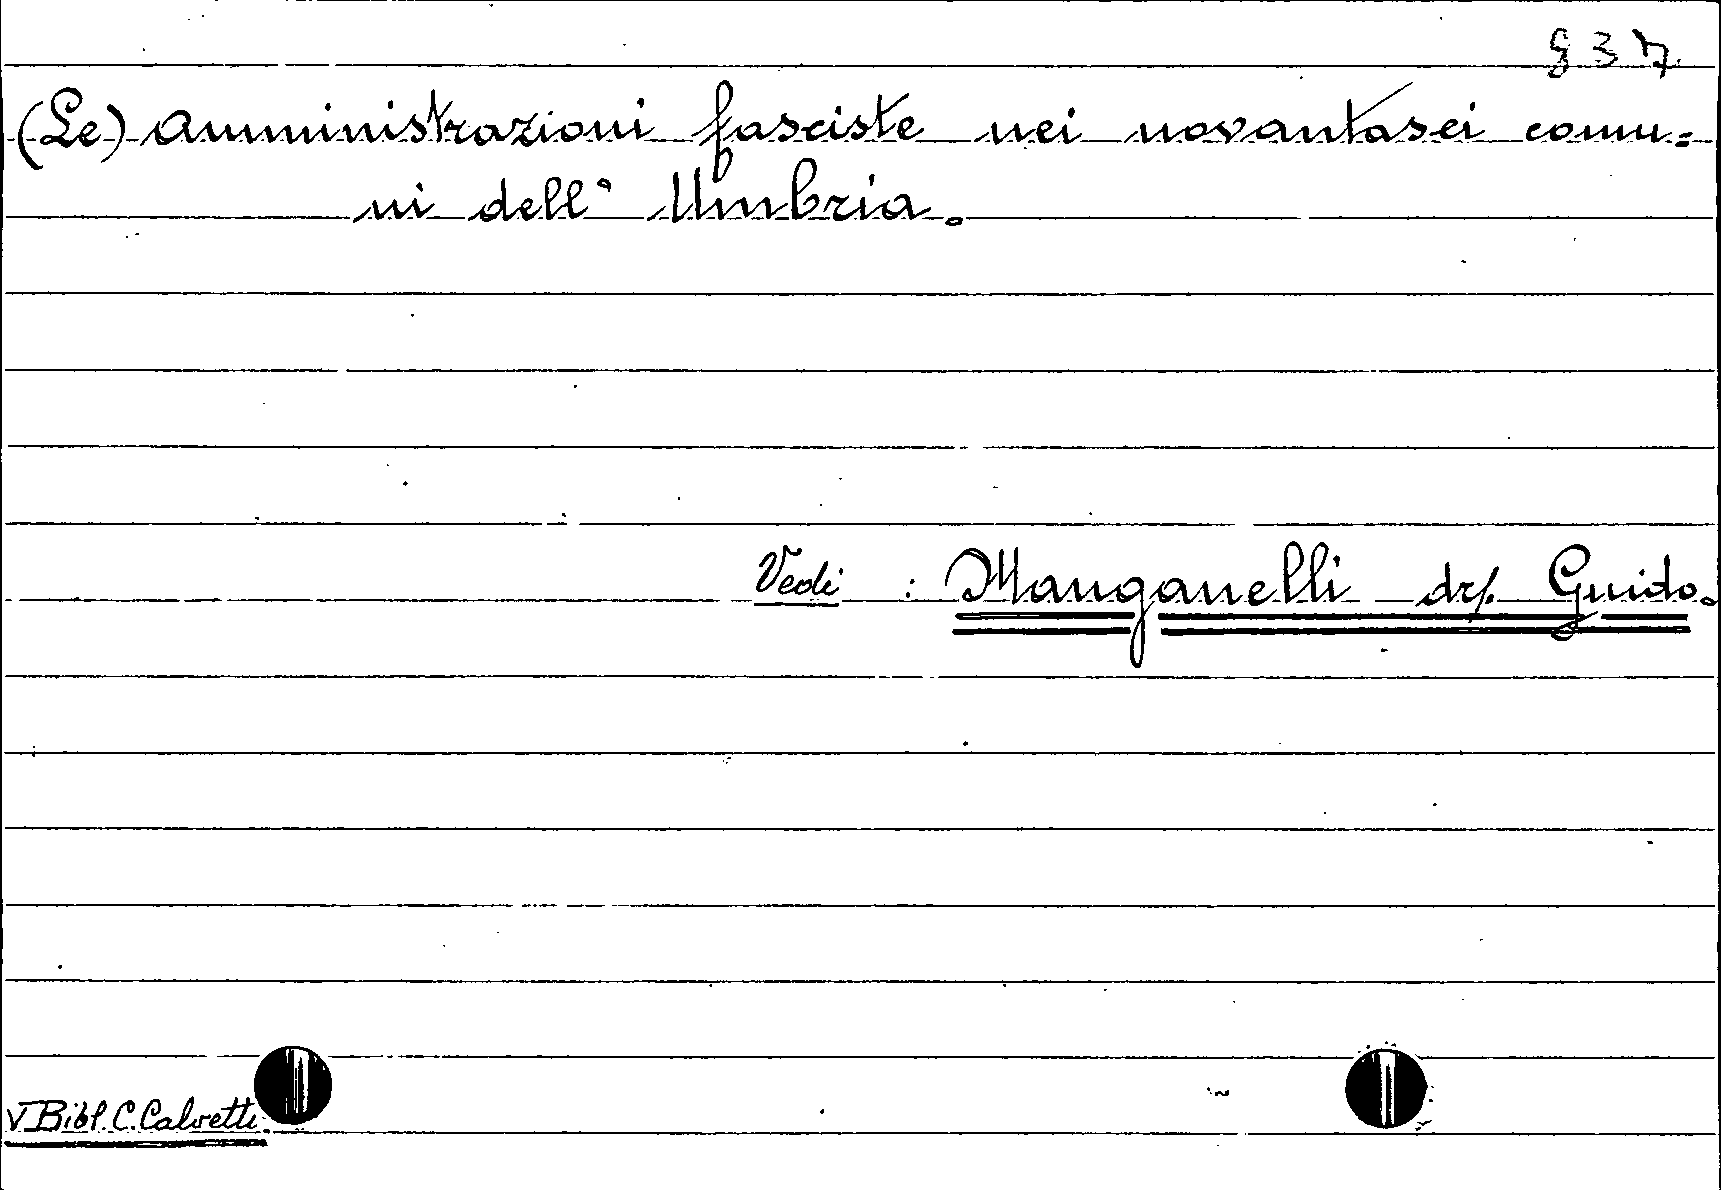 § 37
(Le) Amministrazioni fasciste nei novantasei comu=
ni dell' Umbria.
Vedi : Manganelli dr. Guido.
V Bibl. C. Calvetti.